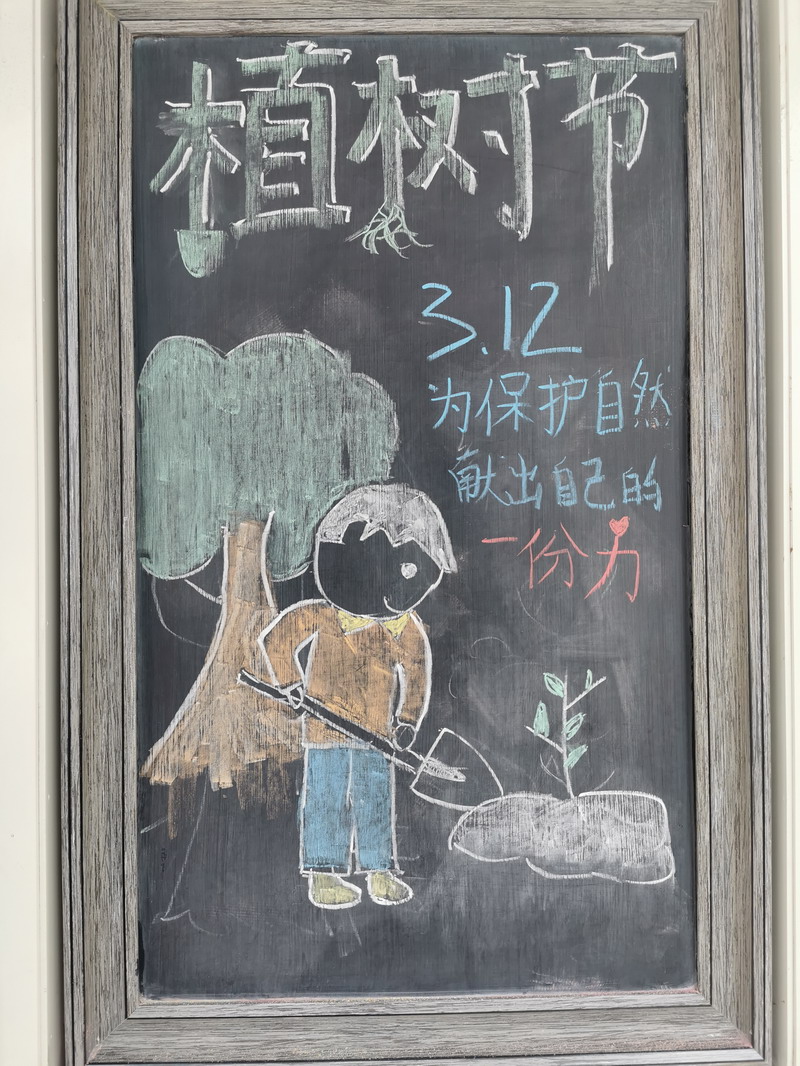 植树节
3.12
为保护自然
献出自己的
一份力